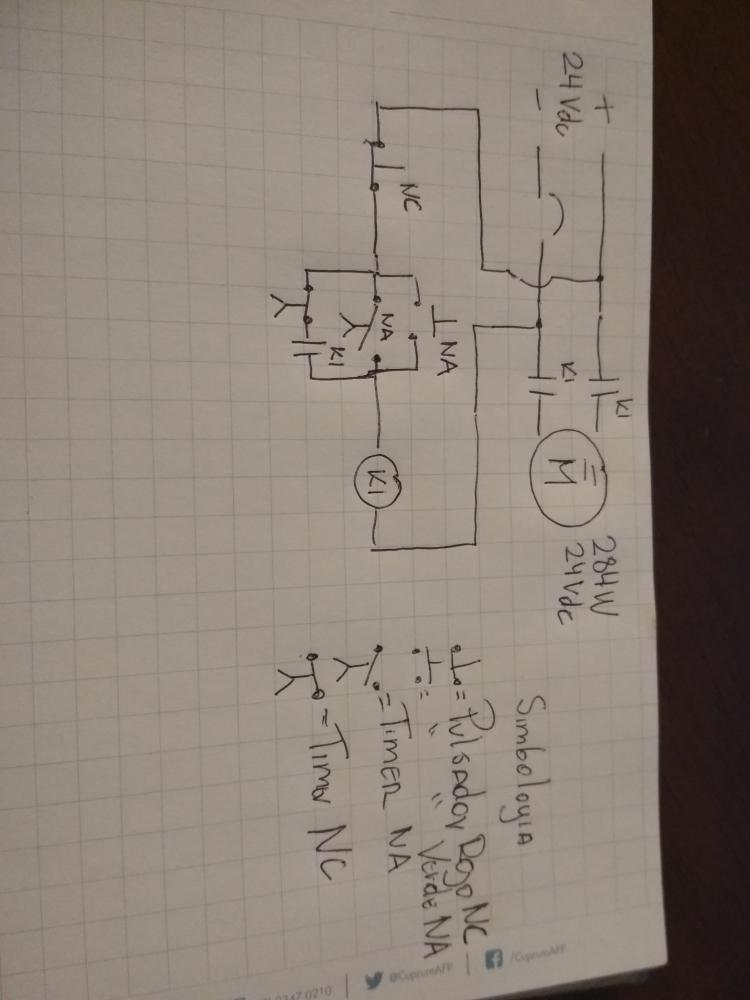 24Vdc
+
-
NC
NA
NA
K1
K1
K1
K1
M
=
284W
24Vdc
Simbologia
= Pulsador Rojo NC
= " " Verde NA
= TIMER NA
= Timer NC
/CuprumAFP
@CuprumAFP